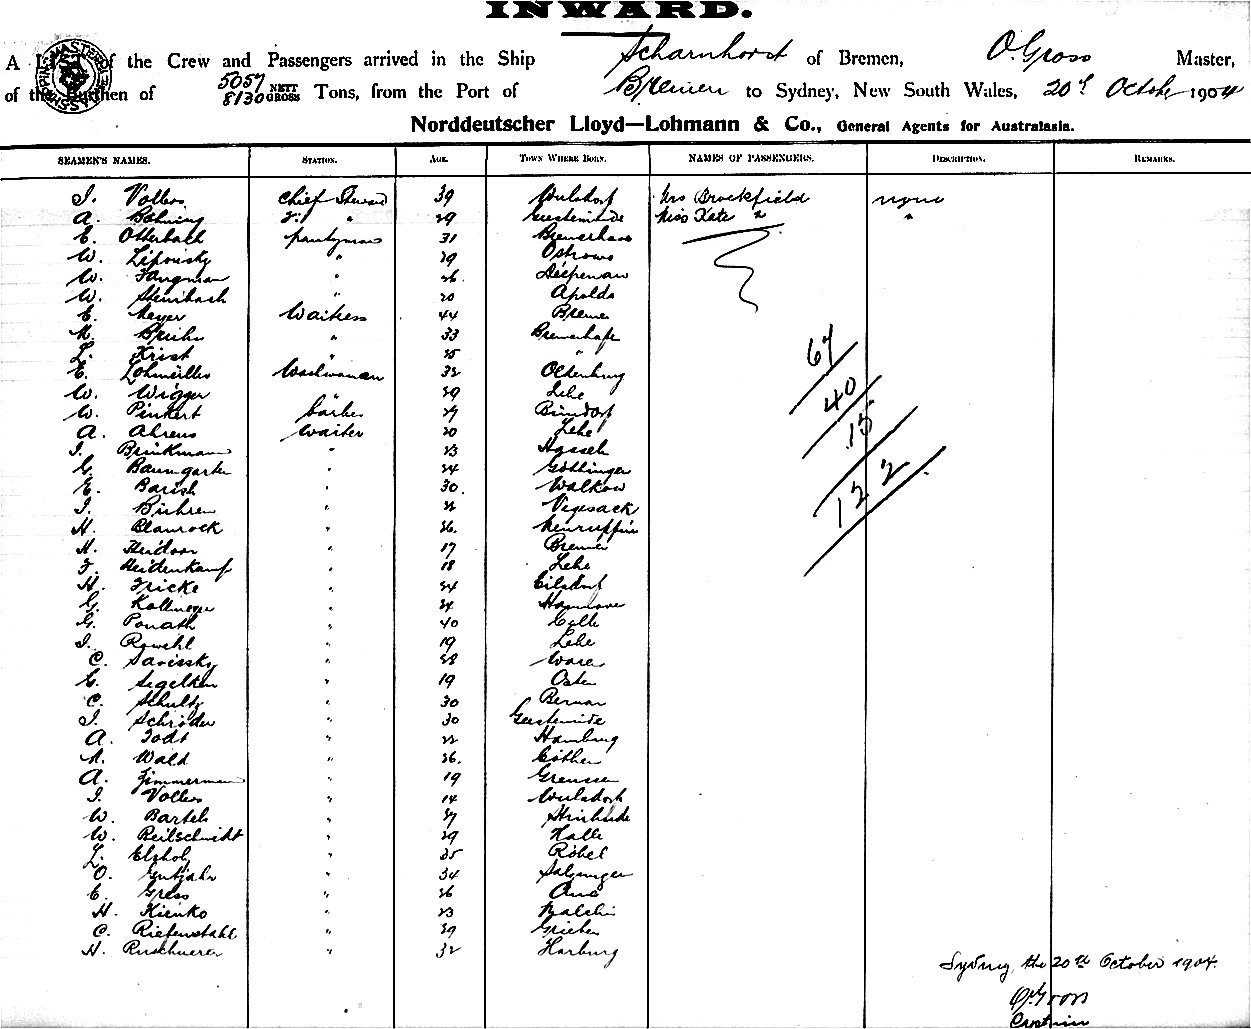 INWARD.
A LIST of the Crew and Passengers arrived in the Ship Scharnhorst of Bremen, O. Gross Master,
of the Burthen of 5057 NETT 8130 GROSS Tons, from the Port of Bremen to Sydney, New South Wales, 20th October 1904
Norddeutscher Lloyd—Lohmann & Co., General Agents for Australasia.
SEAMEN'S NAMES. STATION. AGE. TOWN WHERE BORN. NAMES OF PASSENGERS. DESCRIPTION. REMARKS.
I. Vollers Chief Steward 39 Wulsdorf Mrs Brockfield
A. Böhning 2. " 29 Geestemünde Miss Kate " "
E. Otterbach pantryman 31 Bremerhave
W. Lipinsky " 29 Ostrowo
W. Fangman " 26.
W. Steinbach " 20 Apolda
E. Meyer Waitress 44 Bremen
M. Bruhn " 33 Bremerhafe
L. Krist " 25 "
E. Lohmüller Washwoman 32 Oldenburg
W. Wigger 29 Lehe
W. Pinkert barber 27
A. Ahrens Waiter 20 Lehe
I. Brinkman " 23 Hassel
G. Baumgarte " 24 Göttingen
E. Barish " 30. Walkow
I. Bühren " 22 Vegesack
H. Blanrock " 26. Neuruppin
H. " 17 Bremen
F. Heidenkamp " 18 Lehe
H. Fricke " 24 Eilsdorf
G. Kollmeyer " 24 Hannover
G. Ponath " 40 Celle
I. " 19 Lehe
C. Savissky " 28 Waren
E. Segelken " 19 Osten
C. Schultz " 30 Bernau
I. Schröder " 30 Geestemünde
A. Todt " 22 Hamburg
M. Wald " 26. Cöthen
A. Zimmerman " 19 Greussen
I. Vollers " 14 Wulsdorf
W. Bartels " 37
W. Beilschmidt " 29 Halle
L. Elsholz " 35 Röbel
O. Gutjahr " 34 Salzungen
E. Gress " 26 Aue
H. Kienko " 23 Malchin
C. Riefenstahl " 29 Grieben
H. " 32 Harburg
67
40
15
122
Sydney, the 20th October 1904.
O. Gross
Captain